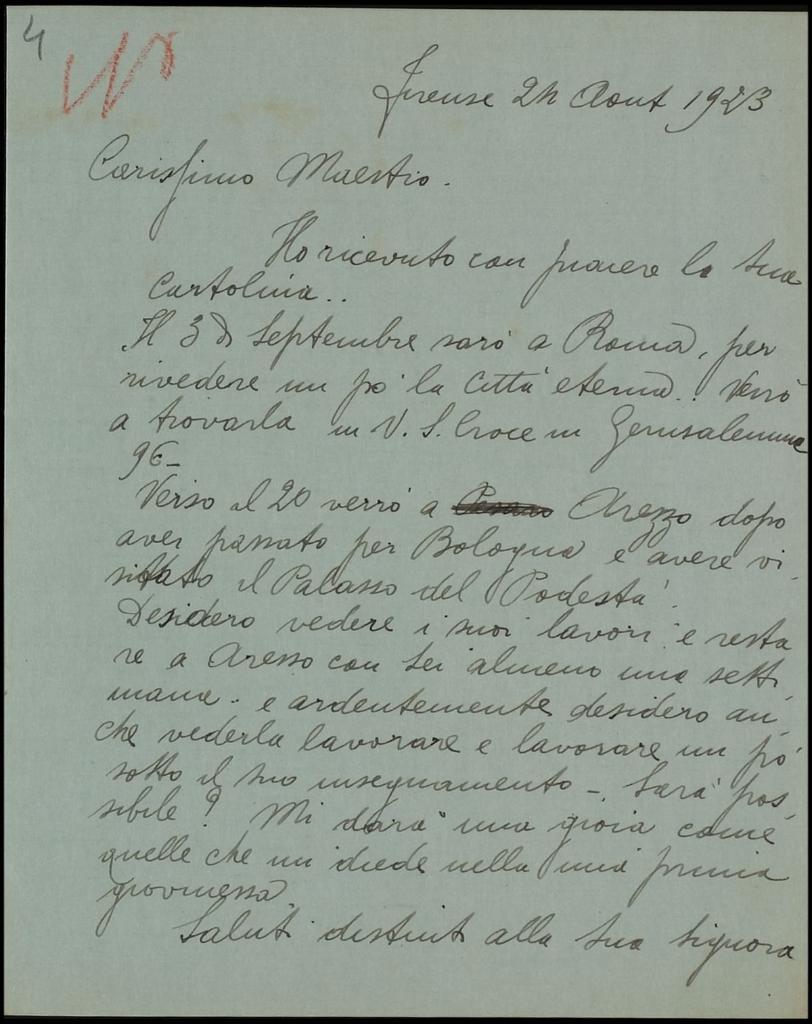 4
Firenze 24 Aout 1923
Carissimo Maestro.
Ho ricevuto con piacere la sua
cartolina..
Il 3 di Septembre sarò a Roma, per
rivedere un pò la Città eterna.. Verrò
a trovarla in V. S. Croce in Gerusalemme
96-
Verso il 20 verrò a Arezzo dopo
aver passato per Bologna e avere vi-
sitato il Palasso del Podestà.
Desidero vedere i suoi lavori e resta
re a Aresso con Lei almeno una setti
mana. e ardentemente desidero an-
che vederla lavorare e lavorare un pò
sotto il suo insegnamento -. Sarà pos-
sibile? Mi darà una gioia come
quelle che mi diede nella mia prima
giovinessa.
Saluti distinti alla sua Signora